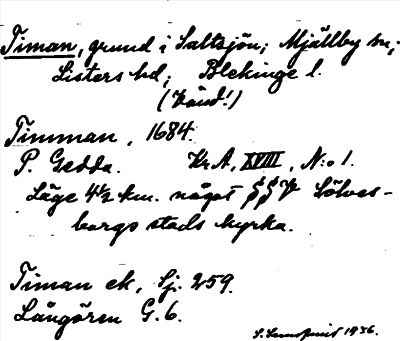 Timan, grund i Saltsjön; Mjällby sn;
Listers hd; Blekinge l.
(känd!)
Timman, 1684.
P. Gedda. Kr A, XVIII, N:o 1.
Läge 4½ km. något SSV Sölves-
borgs stads kyrka.
Timan ek, Sj. 259.
Långören G. 6.
1936.